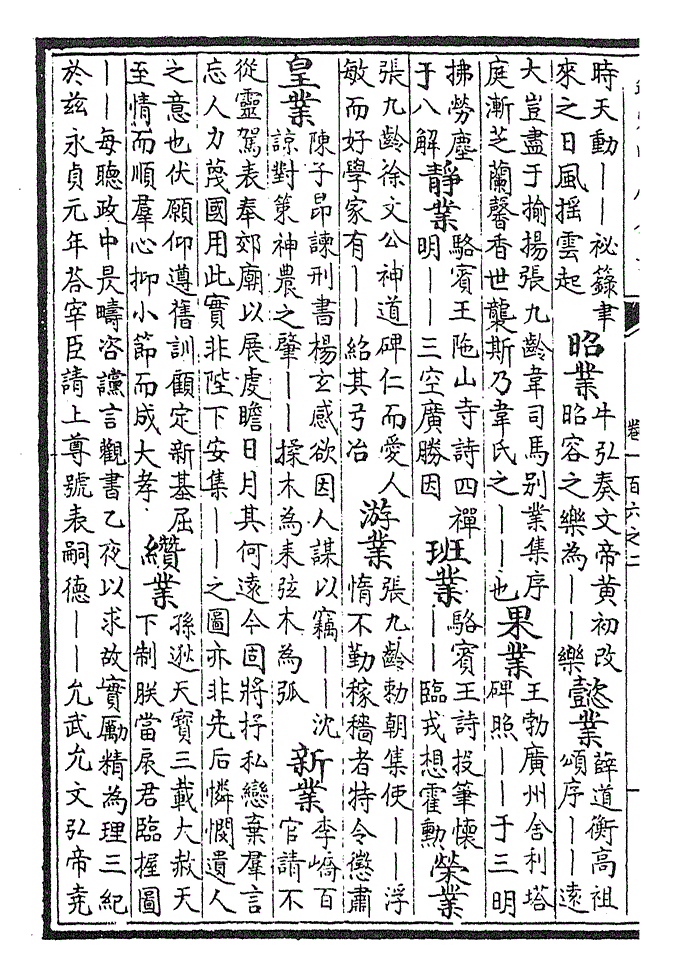 卷一百六之二
時天動——祕籙聿
來之日風揺雲起
昭業
牛弘奏文帝黄初改
昭容之樂為——樂
懿業
薛道衡高祖
頌序——遠
大豈盡于揄揚張九齡韋司馬别業集序
庭漸芝蘭馨香世襲斯乃韋氏之——也
果業
王勃廣州舍利塔
碑照——于三明
拂勞塵
于八解
靜業
駱賓王陁山寺詩四禪
明——三空廣勝因
班業
駱賓王詩投筆懷
——臨戎想霍勳
榮業
張九齡徐文公神道碑仁而愛人
敏而好學家有——紹其弓冶
游業
張九齡勅朝集使——浮
惰不勤稼穡者特令懲肅
皇業
陳子昂諫刑書楊玄感欲因人謀以竊——沈
諒對策神農之肇——揉木為耒弦木為弧
新業
李嶠百
官請不
從靈駕表奉郊廟以展虔瞻日月其何遠今固將抒私戀棄羣言
忘人力茂國用此實非陛下安集——之圖亦非先后憐憫遺人
之意也伏願仰遵舊訓顧定新基屈
至情而順羣心抑小節而成大孝
纘業
孫逖天寶三載大赦天
下制朕當扆君臨握圖
——每聽政中昃疇咨讜言觀書乙夜以求故實勵精為理三紀
於茲永貞元年荅宰臣請上尊號表嗣德——允武允文弘帝堯